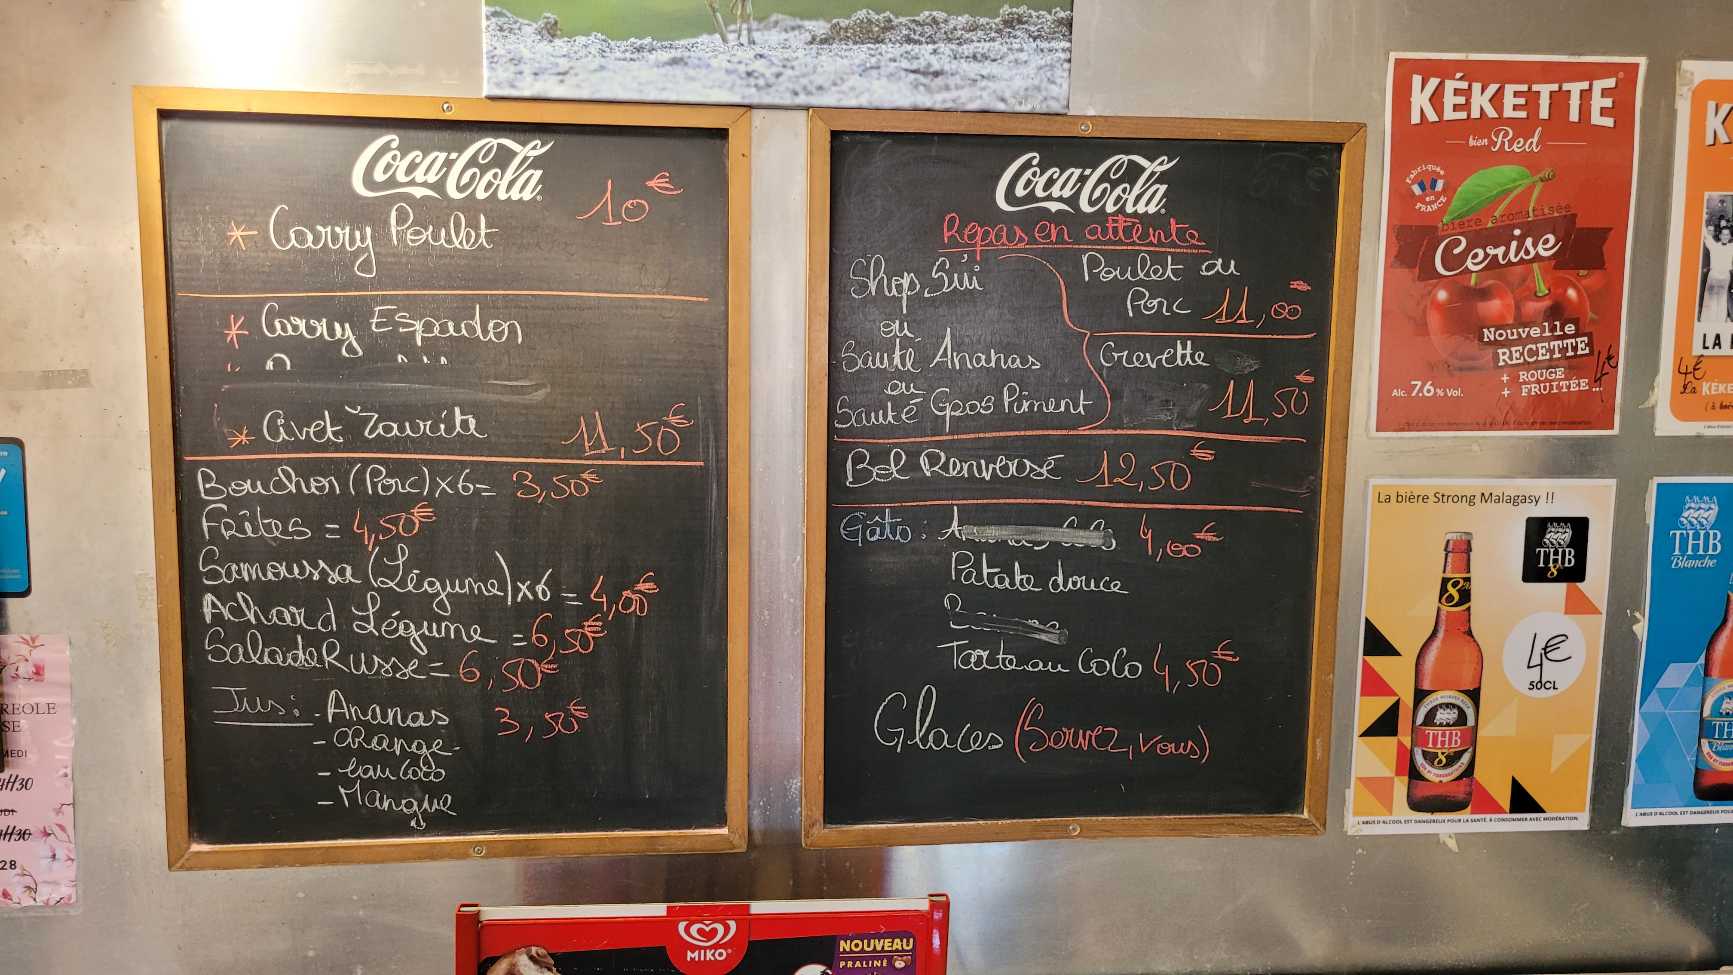 Coca-Cola
10€
* Carry Poulet
* Carry Espadon
* Civet Zourite 11,50€
Bouchon (Porc) x6 = 3,50€
Frites = 4,50€
Samoussa (Légume) x6 = 4,00€
Achard Légume = 6,50€
Salade Russe = 6,50€
Jus : - Ananas 3,50€
- Orange
- Eau Coco
- Mangue
Coca-Cola
Repas en attente
Shop Sui
ou
Sauté Ananas
ou
Sauté Gros Piment
Poulet ou
Porc 11,00€
Crevette
11,50€
Bol Renversé 12,50€
Gâto : 4,00€
Patate douce
Tarte au Coco 4,50€
Glaces (Servez, vous)
KÉKETTE
bien Red
Fabriquée
en
FRANCE
bière aromatisée
Cerise
Nouvelle
RECETTE
+ ROUGE
+ FRUITÉE...
4€
Alc. 7.6% Vol.
4€
La bière Strong Malagasy !!
THB
8
4€
50CL
THB
8
L'ABUS D'ALCOOL EST DANGEREUX POUR LA SANTÉ, À CONSOMMER AVEC MODÉRATION.
THB
Blanche
MIKO
NOUVEAU
PRALINÉ